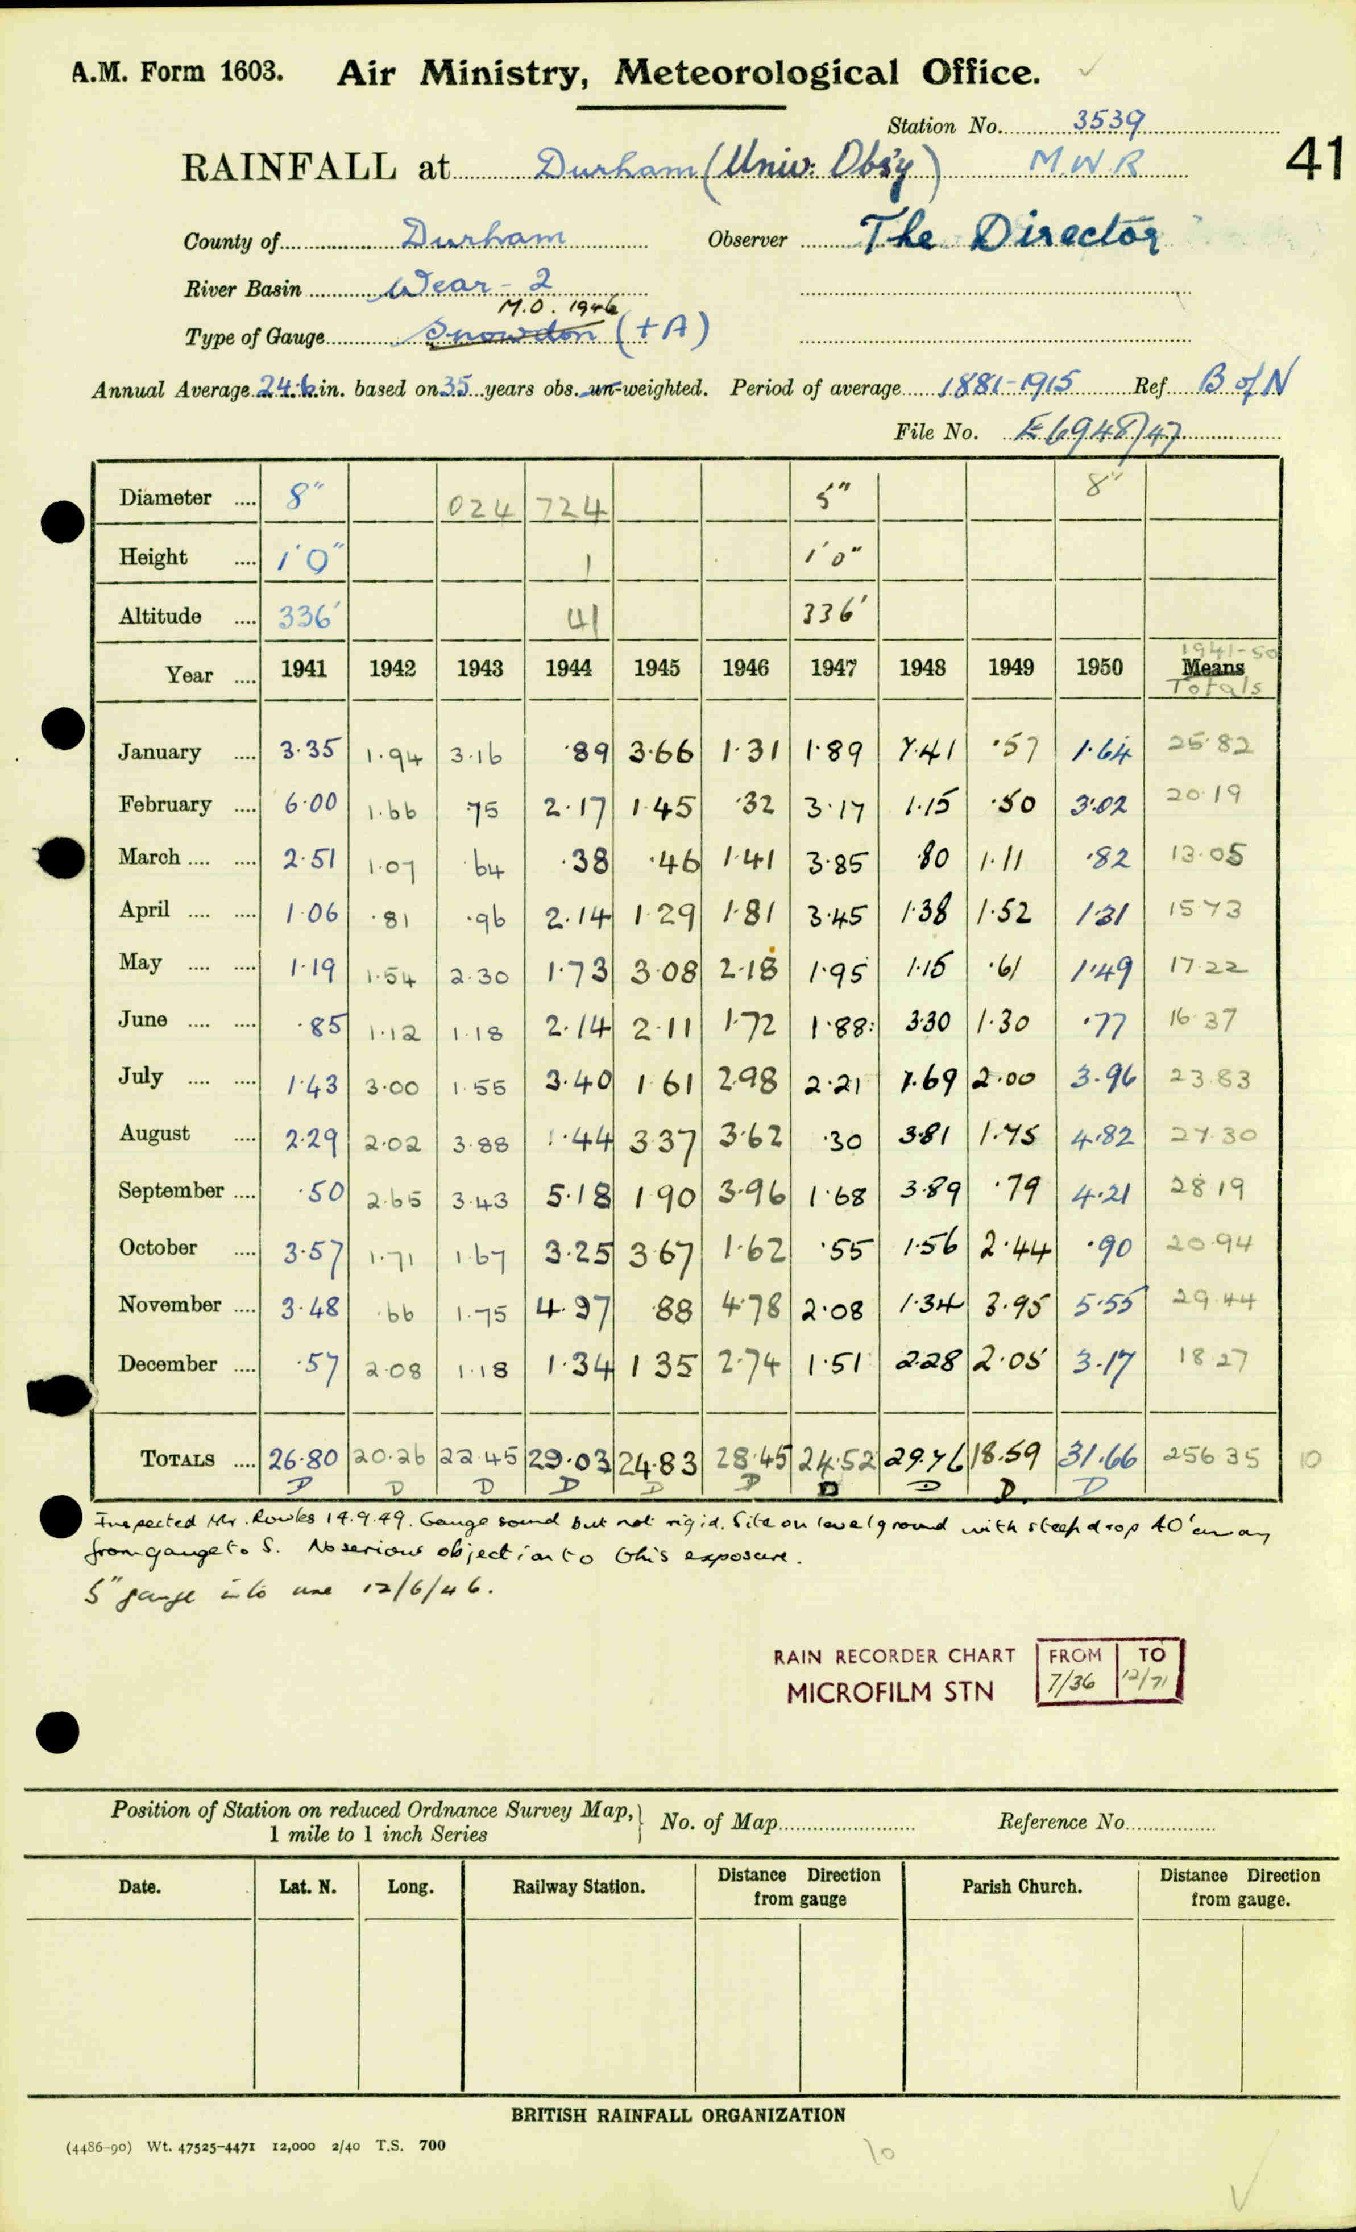 A.M. Form 1603. Air Ministry, Meteorological Office.
Station No. 3539
RAINFALL at Durham (Univ: Obs'y) M.W.R
41
County of Durham Observer The Director
River Basin Wear - 2
M.O. 1946
Type of Gauge Snowdon (+A)
Annual Average 24.6 in. based on 35 years obs. un-weighted. Period of average 1881-1915 Ref. B of N
File No. E6948/47
Diameter .... 8" 024 724 5" 8"
Height .... 1'0" 1 1'0"
Altitude .... 336' 41 336'
1941-50
Year .... 1941 1942 1943 1944 1945 1946 1947 1948 1949 1950 Means
Totals
January .... 3.35 1.94 3.16 .89 3.66 1.31 1.89 7.41 .57 1.64 25.82
February .... 6.00 1.66 .75 2.17 1.45 .32 3.17 1.15 .50 3.02 20.19
March .... .... 2.51 1.07 .64 .38 .46 1.41 3.85 .80 1.11 .82 13.05
April .... .... 1.06 .81 .96 2.14 1.29 1.81 3.45 1.38 1.52 1.31 15.73
May .... .... 1.19 1.54 2.30 1.73 3.08 2.18 1.95 1.15 .61 1.49 17.22
June .... .... .85 1.12 1.18 2.14 2.11 1.72 1.88 3.30 1.30 .77 16.37
July .... .... 1.43 3.00 1.55 3.40 1.61 2.98 2.21 1.69 2.00 3.96 23.83
August .... 2.29 2.02 3.88 1.44 3.37 3.62 .30 3.81 1.75 4.82 27.30
September .... .50 2.65 3.43 5.18 1.90 3.96 1.68 3.89 .79 4.21 28.19
October .... 3.57 1.71 1.67 3.25 3.67 1.62 .55 1.56 2.44 .90 20.94
November .... 3.48 .66 1.75 4.97 .88 4.78 2.08 1.34 3.95 5.55 29.44
December .... .57 2.08 1.18 1.34 1.35 2.74 1.51 2.28 2.05 3.17 18.27
TOTALS .... 26.80 20.26 22.45 29.03 24.83 28.45 24.52 29.76 18.59 31.66 256.35 10
D D D D D D D D D D
Inspected Mr. Rowles 14.9.49. Gauge sound but not rigid. Site on level ground with steep drop 40' away
from gauge to S. No serious objection to this exposure.
5" gauge into use 12/6/46.
RAIN RECORDER CHART FROM TO
MICROFILM STN 7/36 12/71
Position of Station on reduced Ordnance Survey Map, } No. of Map Reference No.
1 mile to 1 inch Series
Date. Lat. N. Long. Railway Station. Distance Direction Parish Church. Distance Direction
from gauge from gauge.
BRITISH RAINFALL ORGANIZATION
(4486-90) Wt. 47525-4471 12,000 2/40 T.S. 700
10